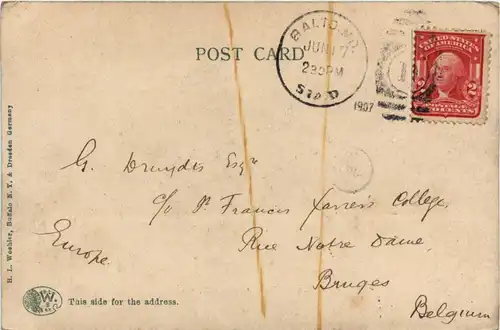 BALTO. MD.
JUN 17
2 30 PM
STA. D
1907
UNITED STATES
OF AMERICA
2 2
POSTAGE
TWO CENTS
POST CARD
G. Druydts Esqr
c/o St Francis Xavier's College
Rue Notre Dame
Bruges
Belgium
Europe.
H. L. Woehler, Buffalo N. Y. & Dresden Germany
W
This side for the address.